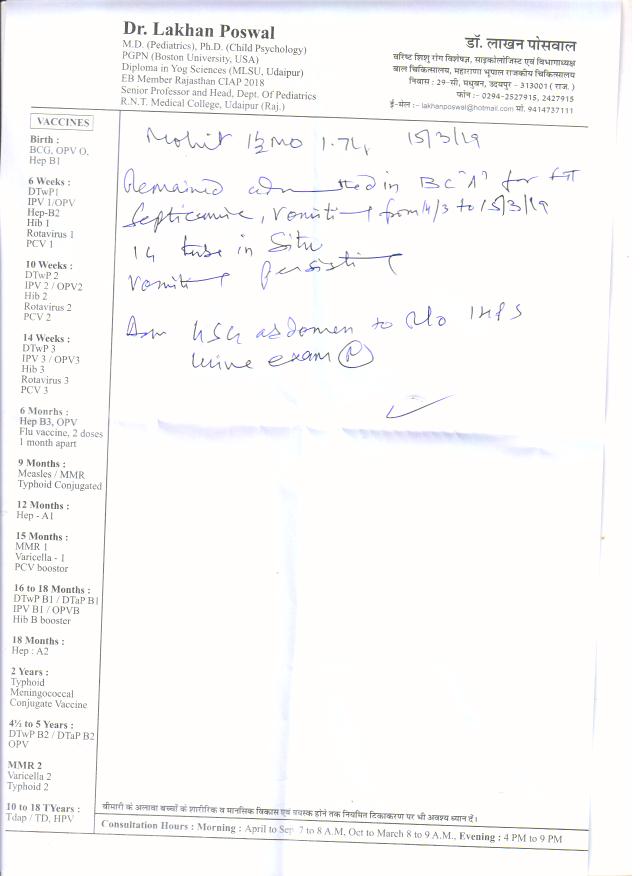 Dr. Lakhan Poswal
M.D. (Pediatrics), Ph.D. (Child Psychology)
PGPN (Boston University, USA)
Diploma in Yog Sciences (MLSU, Udaipur)
EB Member Rajasthan CIAP 2018
Senior Professor and Head, Dept. Of Pediatrics
R.N.T. Medical College, Udaipur (Raj.)
डॉ. लाखन पोसवाल
वरिष्ठ शिशु रोग विशेषज्ञ, साइकोलोजिस्ट एवं विभागाध्यक्ष
बाल चिकित्सालय, महाराणा भूपाल राजकीय चिकित्सालय
निवास : 29-सी, मधुबन, उदयपुर - 313001 ( राज. )
फोन :- 0294-2527915, 2427915
ई-मेल :- lakhanposwal@hotmail.com मो. 9414737111
VACCINES
Birth :
BCG, OPV O,
Hep B1
6 Weeks :
DTwP1
IPV 1/OPV
Hep-B2
Hib 1
Rotavirus 1
PCV 1
10 Weeks :
DTwP 2
IPV 2 / OPV2
Hib 2
Rotavirus 2
PCV 2
14 Weeks :
DTwP 3
IPV 3 / OPV3
Hib 3
Rotavirus 3
PCV 3
6 Monrhs :
Hep B3, OPV
Flu vaccine, 2 doses
1 month apart
9 Months :
Measles / MMR
Typhoid Conjugated
12 Months :
Hep - A1
15 Months :
MMR 1
Varicella - 1
PCV boostor
16 to 18 Months :
DTwP B1 / DTaP B1
IPV B1 / OPVB
Hib B booster
18 Months :
Hep : A2
2 Years :
Typhoid
Meningococcal
Conjugate Vaccine
4½ to 5 Years :
DTwP B2 / DTaP B2
OPV
MMR 2
Varicella 2
Typhoid 2
10 to 18 TYears :
Tdap / TD, HPV
Mohit 1½ MO 15/3/19
Remained admitted in BC "A" for
Septicemia, Vomiting from 14/3 to 15/3/19
tube in Situ
Vomiting persisting
USG abdomen to R/o IHPS
Urine exam (R)
बीमारी के अलावा बच्चों के शारीरिक व मानसिक विकास एवं वयस्क होने तक नियमित टिकाकरण पर भी अवश्य ध्यान दें।
Consultation Hours : Morning : April to Sep 7 to 8 A.M, Oct to March 8 to 9 A.M., Evening : 4 PM to 9 PM